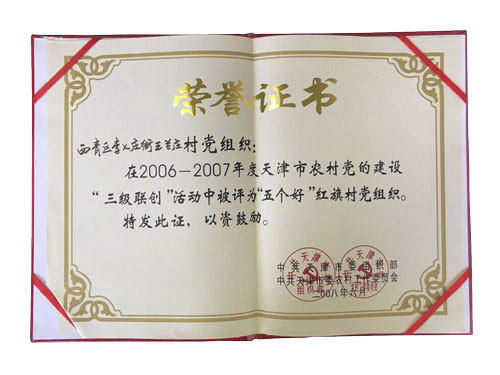 荣誉证书
西青区李七庄街王兰庄村党组织：
在2006—2007年度天津市农村党的建设
“三级联创”活动中被评为“五个好”红旗村党组织。
特发此证，以资鼓励。
中共天津市委组织部
中共天津市委农村工作委员会
二00八年六月